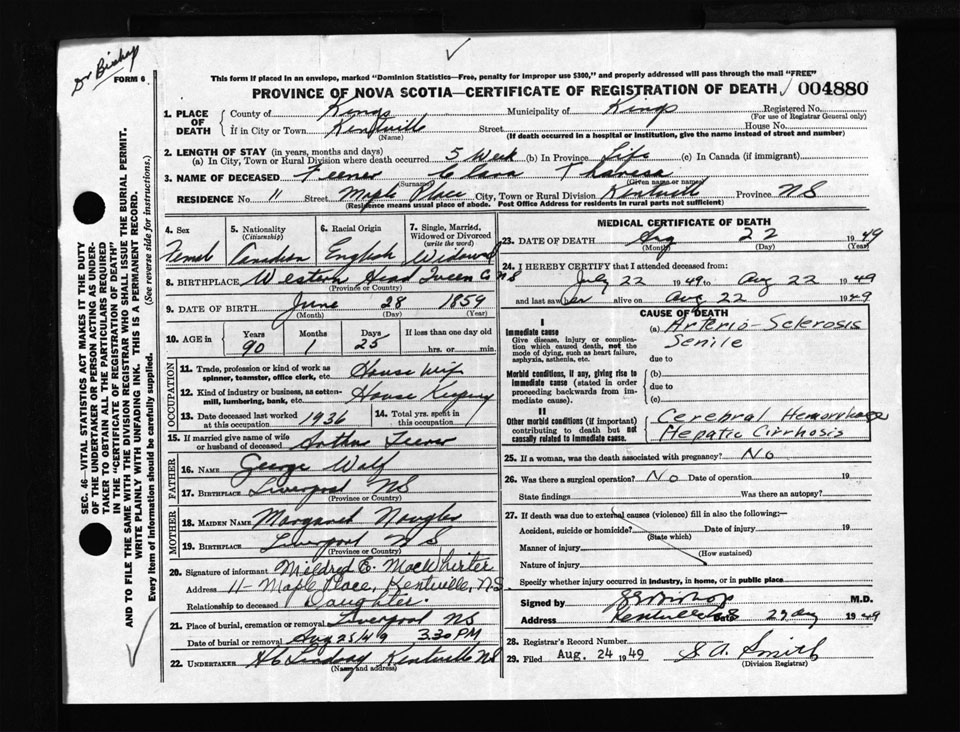 Dr Bishop
FORM 6
This form if placed in an envelope, marked "Dominion Statistics—Free, penalty for improper use $300," and properly addressed will pass through the mail "FREE"
PROVINCE OF NOVA SCOTIA—CERTIFICATE OF REGISTRATION OF DEATH 004880
SEC. 46—VITAL STATISTICS ACT MAKES IT THE DUTY
OF THE UNDERTAKER OR PERSON ACTING AS UNDER-
TAKER TO OBTAIN ALL THE PARTICULARS REQUIRED
IN THE "CERTIFICATE OF REGISTRATION OF DEATH"
AND TO FILE THE SAME WITH THE DIVISION REGISTRAR WHO SHALL ISSUE THE BURIAL PERMIT.
WRITE PLAINLY WITH UNFADING INK. THIS IS A PERMANENT RECORD.
Every item of information should be carefully supplied. (See reverse side for instructions.)
1. PLACE OF DEATH
County of Kings Municipality of Kings Registered No.
(For use of Registrar General only)
If in City or Town Kentville Street House No.
(Name) (If death occurred in a hospital or institution, give the name instead of street and number)
2. LENGTH OF STAY (in years, months and days)
(a) In City, Town or Rural Division where death occurred 5 Week (b) In Province Life (c) In Canada (if immigrant)
3. NAME OF DECEASED Feener Clara Theresa
(Surname) (Given name or names)
RESIDENCE No. 11 Street Maple Place City, Town or Rural Division Kentville Province NS
(Residence means usual place of abode. Post Office Address for residents in rural parts not sufficient)
4. Sex
5. Nationality
(Citizenship)
6. Racial Origin
7. Single, Married,
Widowed or Divorced
(write the word)
Femal Canadian English Widowed
8. BIRTHPLACE Western Head Queen Co NS
(Province or Country)
9. DATE OF BIRTH June 28 1859
(Month) (Day) (Year)
10. AGE in Years Months Days If less than one day old
90 1 25 hrs. or min.
OCCUPATION
11. Trade, profession or kind of work as
spinner, teamster, office clerk, etc. House Wife
12. Kind of industry or business, as cotton-
mill, lumbering, bank, etc. House Keeping
13. Date deceased last worked
at this occupation 1936
14. Total yrs. spent in
this occupation
15. If married give name of wife
or husband of deceased Arthur Feener
FATHER
16. NAME George Wolf
17. BIRTHPLACE Liverpool NS
(Province or Country)
MOTHER
18. MAIDEN NAME Margaret
19. BIRTHPLACE Liverpool NS
(Province or Country)
20. Signature of informant Mildred E. MacWhirter
Address 11- Maple Place, Kentville, NS
Relationship to deceased Daughter.
21. Place of burial, cremation or removal Liverpool NS
Date of burial or removal Aug 25/49 3.30 PM
22. UNDERTAKER H C Lindsay Kentville NS
(Name and address)
MEDICAL CERTIFICATE OF DEATH
23. DATE OF DEATH Aug 22 1949
(Month) (Day) (Year)
24. I HEREBY CERTIFY that I attended deceased from:
July 22 1949 to Aug 22 1949
and last saw her alive on Aug 22 1949
CAUSE OF DEATH
I
Immediate cause
Give disease, injury or complica-
tion which caused death, not the
mode of dying, such as heart failure,
asphyxia, asthenia, etc.
(a) Arterio-Sclerosis
Senile
due to
Morbid conditions, if any, giving rise to
immediate cause (stated in order
proceeding backwards from im-
mediate cause).
(b)
due to
(c)
II
Other morbid conditions (if important)
contributing to death but not
causally related to immediate cause.
Cerebral Hemorrhage
Hepatic Cirrhosis
25. If a woman, was the death associated with pregnancy? No
26. Was there a surgical operation? No Date of operation 19
State findings Was there an autopsy?
27. If death was due to external causes (violence) fill in also the following:—
Accident, suicide or homicide? Date of injury 19
(State which)
Manner of injury
(How sustained)
Nature of injury
Specify whether injury occurred in industry, in home, or in public place
Signed by Bishop M.D.
Address Kentville NS Date 23 Aug 1949
28. Registrar's Record Number
29. Filed Aug. 24 1949 S A. Smith
(Division Registrar)